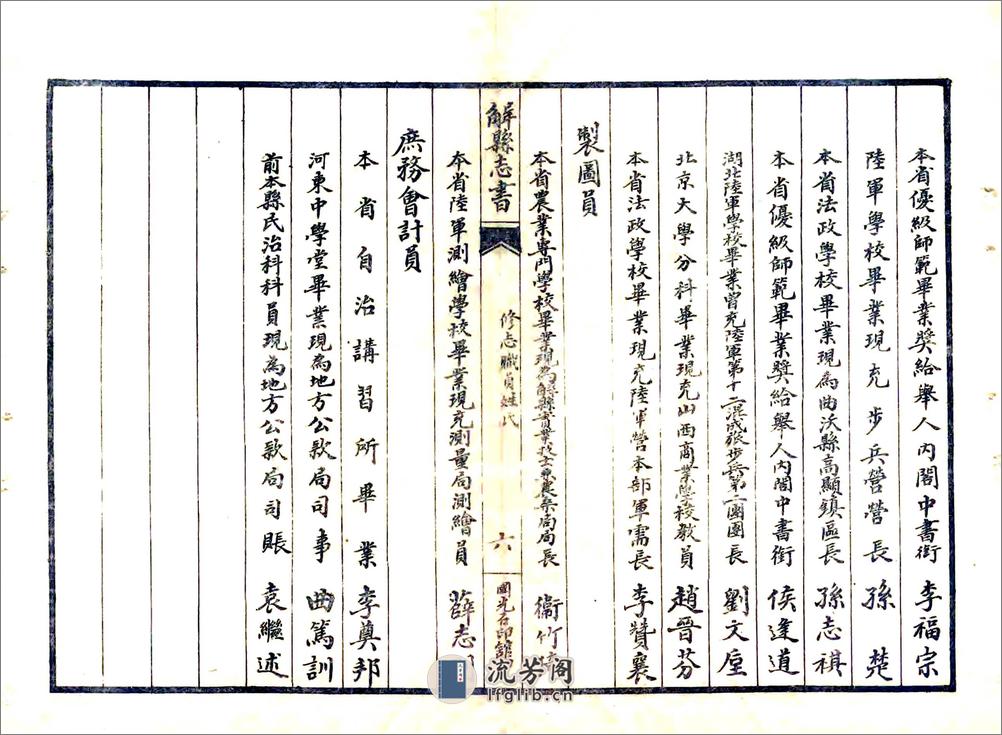 本省優級師範畢業獎給舉人內閣中書銜 李福宗
陸軍學校畢業現充步兵營營長 孫楚
本省法政學校畢業現為曲沃縣高顯鎮區長 孫志祺
本省優級師範畢業獎給舉人內閣中書銜 侯逢道
湖北陸軍學校畢業曾充陸軍第十二混成旅步兵第二團團長 劉文屋
北京大學分科畢業現充山西商業學校教員 趙晉芬
本省法政學校畢業現充陸軍營本部軍需長 李贊襄
製圖員
本省農業專門學校畢業現為解縣實業技士兼農桑局局長 衞竹
解縣志書
修志職員姓氏
六
國光石印館
本省陸軍測繪學校畢業現充測量局測繪員 薛志
庶務會計員
本省自治講習所畢業 李奠邦
河東中學堂畢業現為地方公款局司事 曲篤訓
前本縣民治科科員現為地方公款局司賬 袁繼述
流芳阁
lfglib.cn